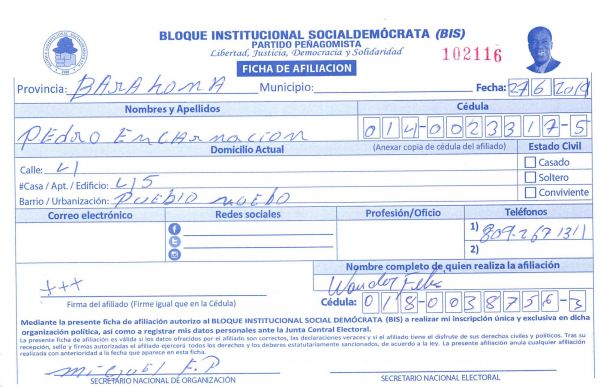 BLOQUE INSTITUCIONAL SOCIALDEMÓCRATA (BIS)
PARTIDO PEÑAGOMISTA
Libertad, Justicia, Democracia y Solidaridad
102116
FICHA DE AFILIACION
Provincia: BARAHONA Municipio: Fecha: 27 6 2019
Nombres y Apellidos Cédula
PEDRO ENCARNACION 014-0023317-5
Domicilio Actual (Anexar copia de cédula del afiliado) Estado Civil
Calle: 41 Casado
#Casa / Apt. / Edificio: 45 Soltero
Barrio / Urbanización: PUEBlO NUEBO Conviviente
Correo electrónico Redes sociales Profesión/Oficio Teléfonos
1) 809-267 1311
2)
Nombre completo de quien realiza la afiliación
+++ Wander Feliz
Firma del afiliado (Firme igual que en la Cédula) Cédula: 018-0038756-3
Mediante la presente ficha de afiliación autorizo al BLOQUE INSTITUCIONAL SOCIAL DEMÓCRATA (BIS) a realizar mi inscripción única y exclusiva en dicha
organización política, así como a registrar mis datos personales ante la Junta Central Electoral.
La presente ficha de afiliación es válida si los datos ofrecidos por el afiliado son correctos, las declaraciones veraces y si el afiliado tiene el disfrute de sus derechos civiles y políticos. Tras su
recepción, sello y firmas autorizadas el afiliado ejercerá todos los derechos y los deberes estatutariamente sancionados, de acuerdo a la ley. La presente afiliación anula cualquier afiliación
realizada con anterioridad a la fecha que aparece en esta ficha.
Miguel F.P
SECRETARIO NACIONAL DE ORGANIZACIÓN SECRETARIO NACIONAL ELECTORAL